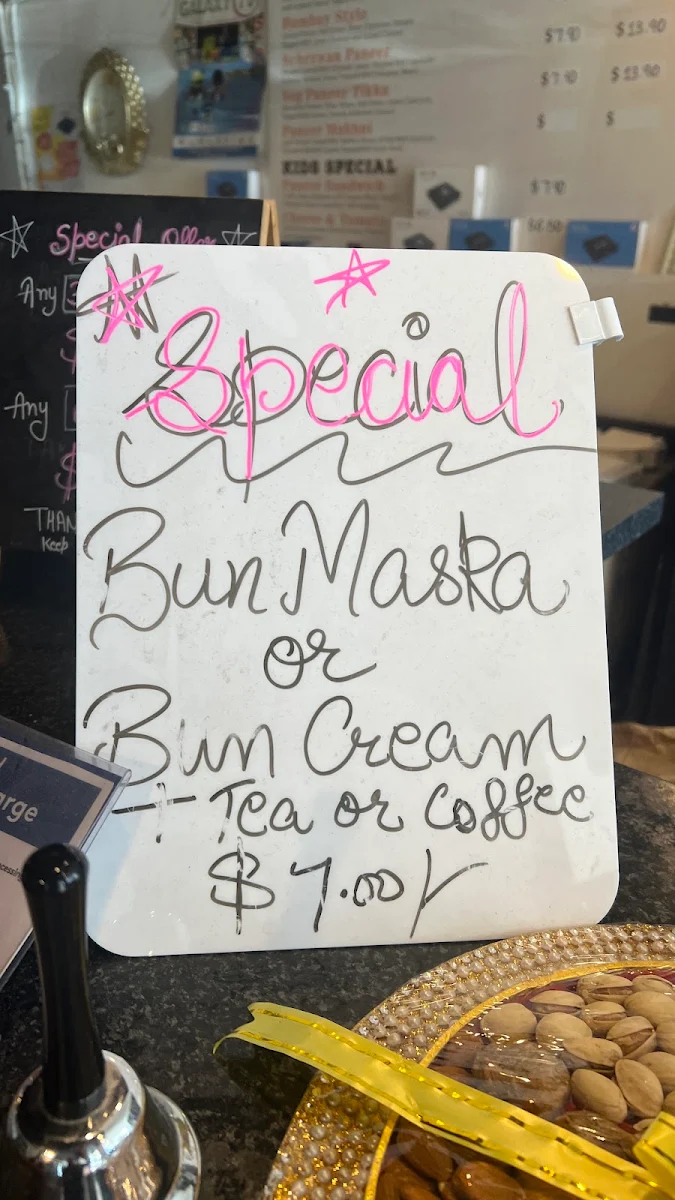 GALAXY
Bombay Style
$7.90 $13.90
Schezwan Paneer
$7.90 $13.90
Veg Paneer Tikka
$ $
Paneer Makhni
KIDS SPECIAL
$7.90
Cheese & Tomato
$6.50
Special Offer
Any
Any
$
THAN
Keep
Special
Bun Maska
or
Bun Cream
+ Tea or Coffee
$7.00/-
arge